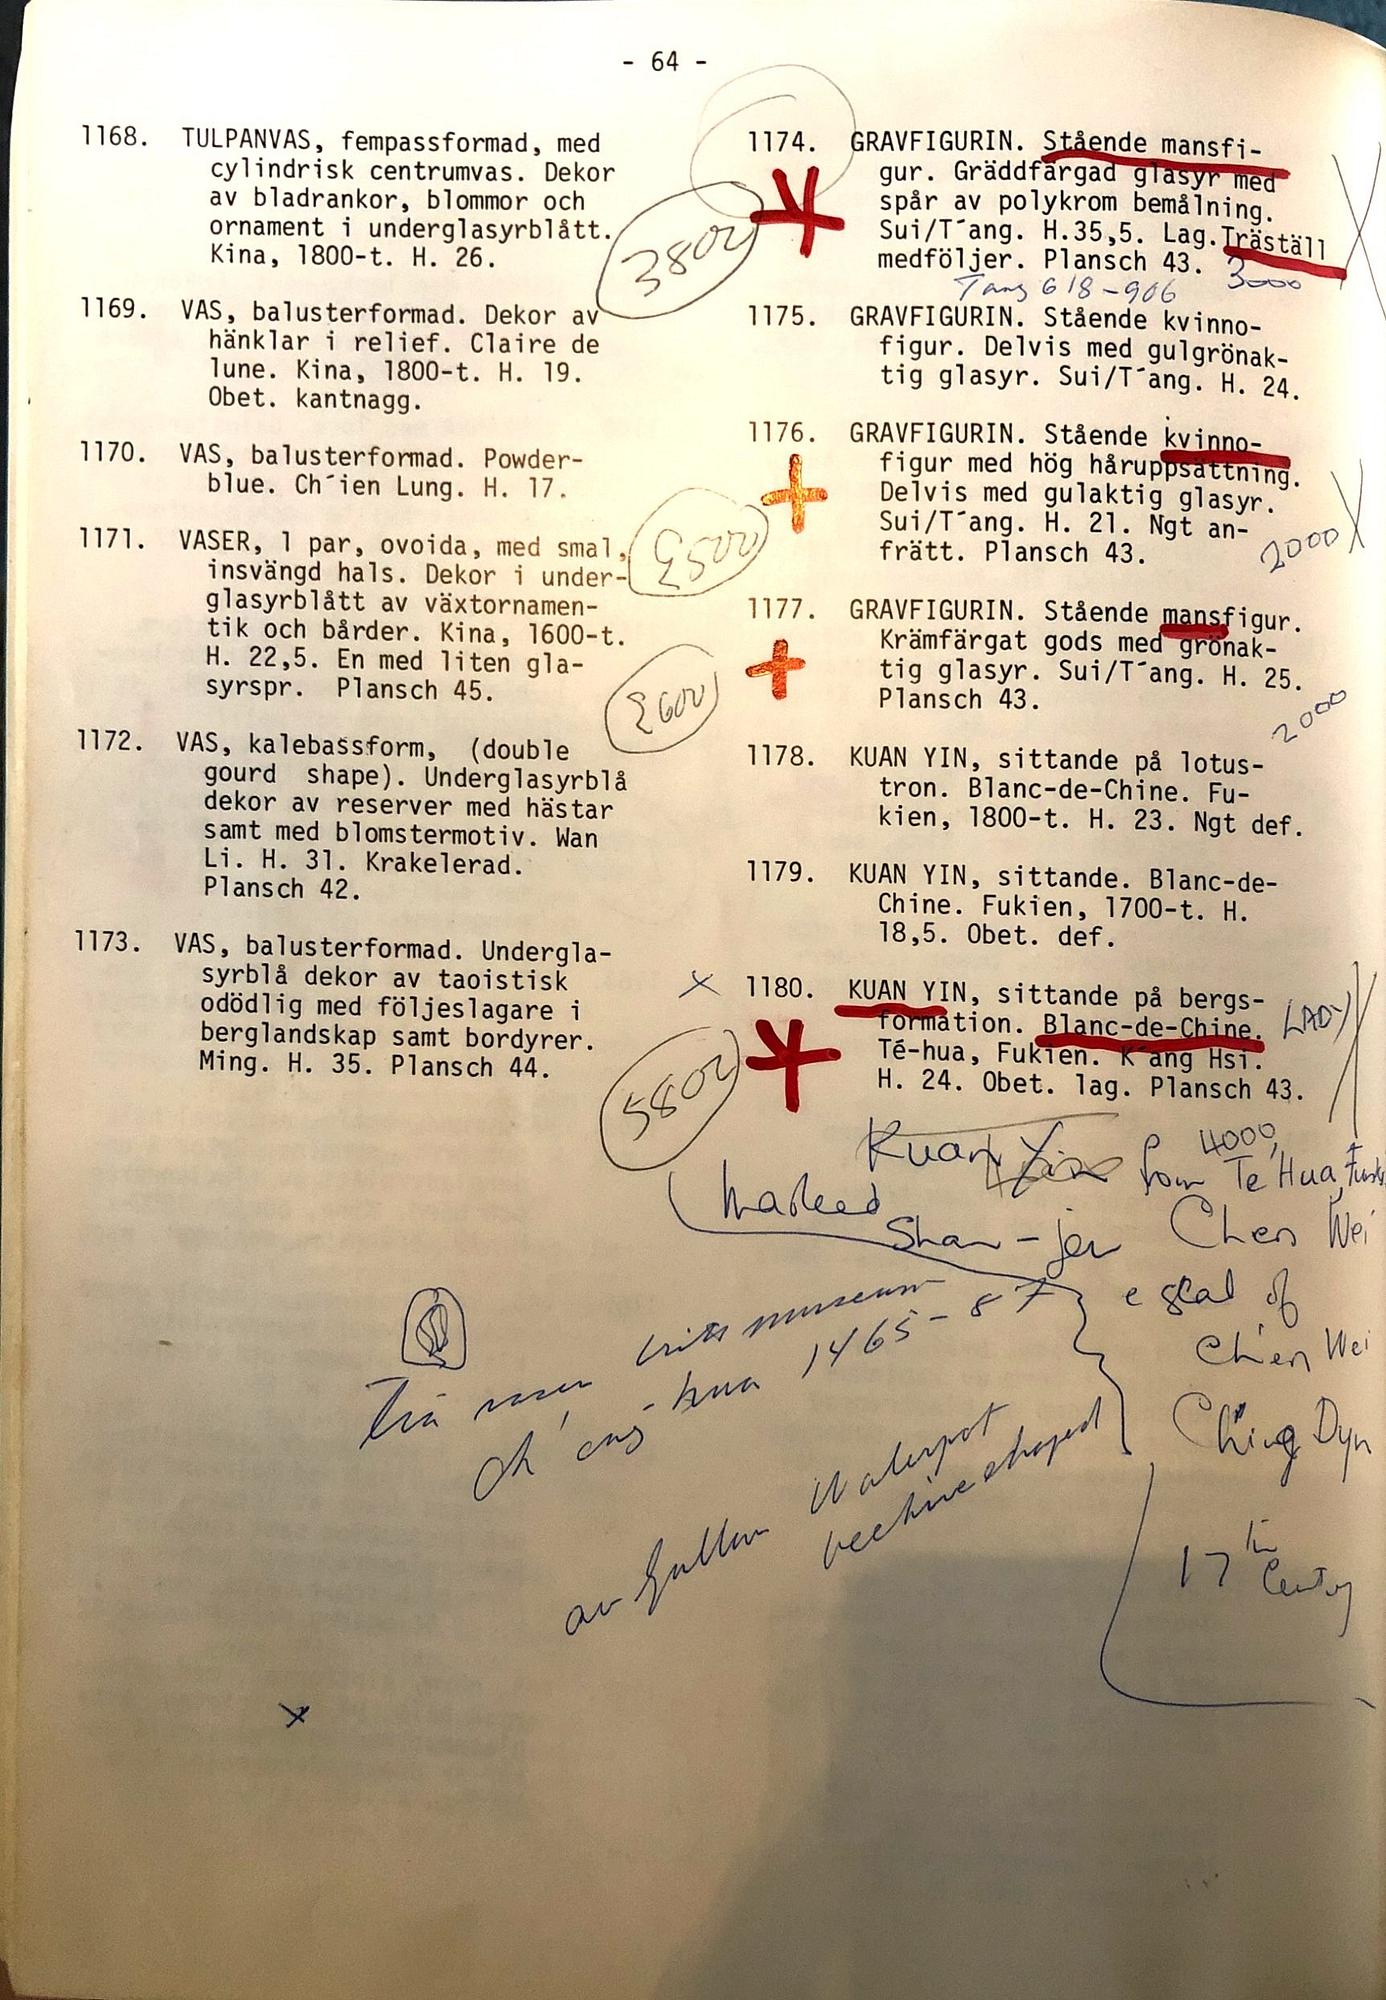 - 64 -
1168. TULPANVAS, fempassformad, med
cylindrisk centrumvas. Dekor
av bladrankor, blommor och
ornament i underglasyrblått.
Kina, 1800-t. H. 26.
1169. VAS, balusterformad. Dekor av
hänklar i relief. Claire de
lune. Kina, 1800-t. H. 19.
Obet. kantnagg.
1170. VAS, balusterformad. Powder-
blue. Ch´ien Lung. H. 17.
1171. VASER, 1 par, ovoida, med smal,
insvängd hals. Dekor i under-
glasyrblått av växtornamen-
tik och bårder. Kina, 1600-t.
H. 22,5. En med liten gla-
syrspr. Plansch 45.
1172. VAS, kalebassform, (double
gourd shape). Underglasyrblå
dekor av reserver med hästar
samt med blomstermotiv. Wan
Li. H. 31. Krakelerad.
Plansch 42.
1173. VAS, balusterformad. Undergla-
syrblå dekor av taoistisk
odödlig med följeslagare i
berglandskap samt bordyrer.
Ming. H. 35. Plansch 44.
3800
1174. GRAVFIGURIN. Stående mansfi-
gur. Gräddfärgad glasyr med
spår av polykrom bemålning.
Sui/T´ang. H.35,5. Lag.Träställ
medföljer. Plansch 43. 3000
Tang 618-906
1175. GRAVFIGURIN. Stående kvinno-
figur. Delvis med gulgrönak-
tig glasyr. Sui/T´ang. H. 24.
1176. GRAVFIGURIN. Stående kvinno-
figur med hög håruppsättning.
Delvis med gulaktig glasyr.
Sui/T´ang. H. 21. Ngt an-
frätt. Plansch 43.
2000
1177. GRAVFIGURIN. Stående mansfigur.
Krämfärgat gods med grönak-
tig glasyr. Sui/T´ang. H. 25.
Plansch 43.
2000
1178. KUAN YIN, sittande på lotus-
tron. Blanc-de-Chine. Fu-
kien, 1800-t. H. 23. Ngt def.
1179. KUAN YIN, sittande. Blanc-de-
Chine. Fukien, 1700-t. H.
18,5. Obet. def.
x 1180. KUAN YIN, sittande på bergs-
formation. Blanc-de-Chine. LADY
Té-hua, Fukien. K´ang Hsi.
H. 24. Obet. lag. Plansch 43.
5800
4000
Kuan Yin from Te Hua,
Marked
Shan-jen Chen Wei
museum
ch'eng-hua 1465-87
seal of
Ch'en Wei
Ch'ing Dyn
Waterpot
beehiveshaped
17th Century
x